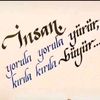 İnsan
yorula yorula yürür,
kırıla kırıla büyür...